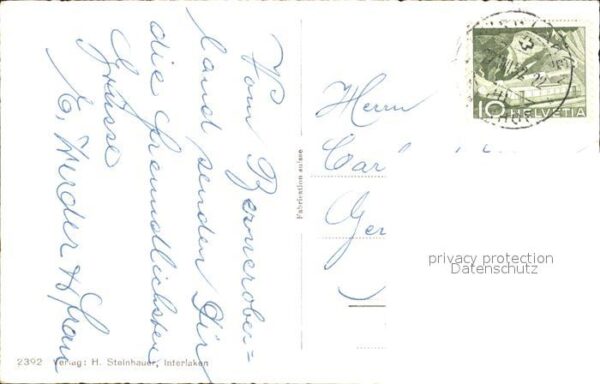 Vom Bernerober=
land senden Dir
die freundlichsten
Grüsse
E. Wirder & Frau
Herrn
Car
Ger
Fabrication suisse
10 HELVETIA
privacy protection
Datenschutz
2392 Verlag: H. Steinhauer, Interlaken